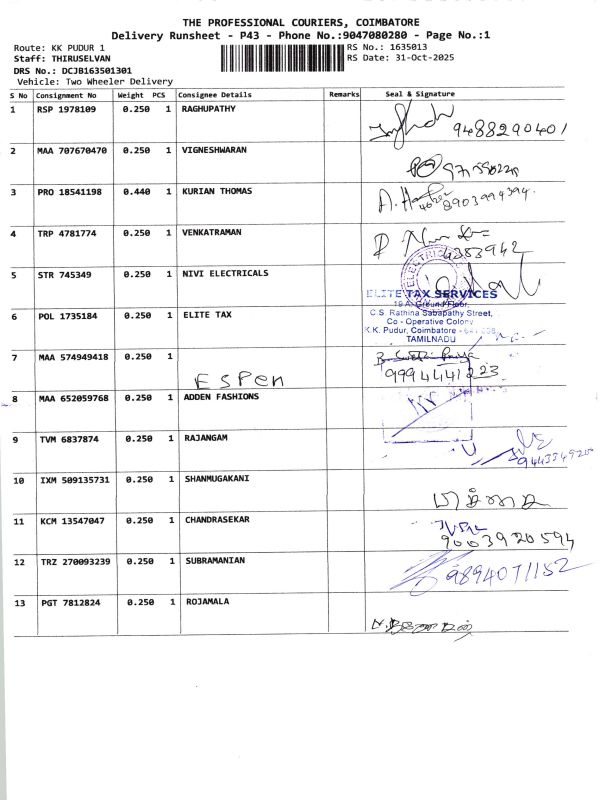 THE PROFESSIONAL COURIERS, COIMBATORE
Delivery Runsheet - P43 - Phone No.:9047080280 - Page No.:1
Route: KK PUDUR 1 RS No.: 1635013
Staff: THIRUSELVAN RS Date: 31-Oct-2025
DRS No.: DCJB163501301
Vehicle: Two Wheeler Delivery
S No Consignment No Weight PCS Consignee Details Remarks Seal & Signature
1 RSP 1978109 0.250 1 RAGHUPATHY
9488290401
2 MAA 707670470 0.250 1 VIGNESHWARAN
3 PRO 18541198 0.440 1 KURIAN THOMAS
8903994394.
4 TRP 4781774 0.250 1 VENKATRAMAN
5 STR 745349 0.250 1 NIVI ELECTRICALS
ELITE TAX SERVICES
19 A, Ground Floor,
6 POL 1735184 0.250 1 ELITE TAX
C.S. Rathina Sabapathy Street,
Co - Operative Colony
K.K. Pudur, Coimbatore -
TAMILNADU
7 MAA 574949418 0.250 1
ESPEN
9994441223
8 MAA 652059768 0.250 1 ADDEN FASHIONS
9 TVM 6837874 0.250 1 RAJANGAM
10 IXM 509135731 0.250 1 SHANMUGAKANI
11 KCM 13547047 0.250 1 CHANDRASEKAR
9003920594
12 TRZ 270093239 0.250 1 SUBRAMANIAN
9894071152
13 PGT 7812824 0.250 1 ROJAMALA